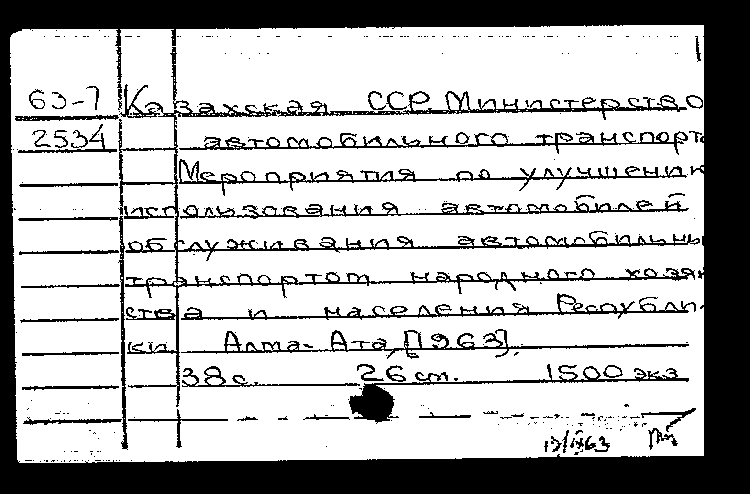 63-7 Казахская ССР. Министерство
2534 автомобильного транспорт
Мероприятия по улучшени
использования автомобилей
обслуживания автомобильны
транспортом народного хозя
ства и населения Республи-
ки Алма-Ата, [1963].
38 с. 26 см. 1500 экз